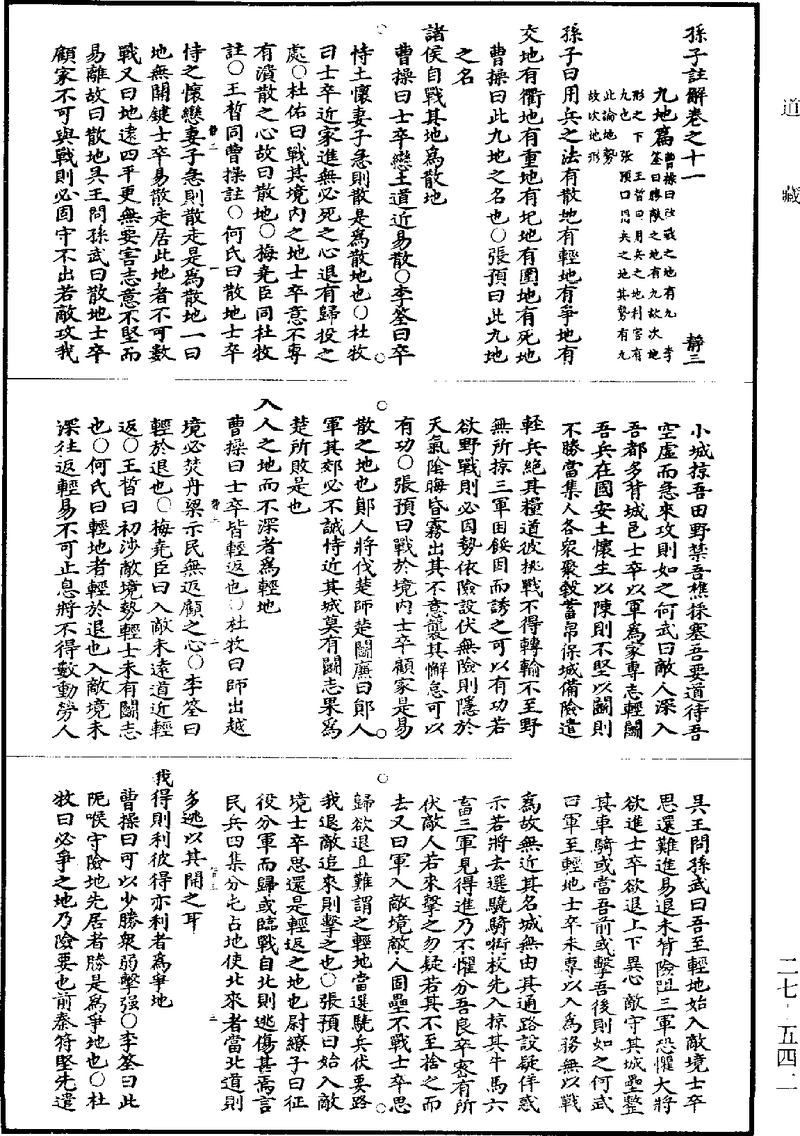 道藏
孫子註解卷之十一　靜三
九地篇
曹操曰欲戰之地有九　李
筌曰勝敵之地有九故次地
形之下　王晳曰用兵之地利害有
九也　張預曰用兵之地其勢有九
此論地勢
故次地形
孫子曰用兵之法有散地有輕地有爭地有
交地有衢地有重地有圮地有圍地有死地
曹操曰此九地之名也○張預曰此九地
之名
諸侯自戰其地爲散地
曹操曰士卒戀土道近易散○李筌曰卒
恃土懷妻子急則散是爲散地也○杜牧
曰士卒近家進無必死之心退有歸投之
處○杜佑曰戰其境內之地士卒意不專
有潰散之心故曰散地○梅堯臣同杜牧
註○王晳同曹操註○何氏曰散地士卒
恃之懷戀妻子急則散走是爲散地一曰
地無關鍵士卒易散走居此地者不可數
戰又曰地遠四平更無要害志意不堅而
易離故曰散地吳王問孫武曰散地士卒
顧家不可與戰則必固守不出若敵攻我
小城掠吾田野禁吾樵採塞吾要道待吾
空虛而急來攻則如之何武曰敵人深入
吾都多背城邑士卒以軍爲家專志輕鬭
吾兵在國安土懷生以陳則不堅以鬭則
不勝當集人合衆聚穀蓄帛保城備險遣
輕兵絕其糧道彼挑戰不得轉輸不至野
無所掠三軍困餒因而誘之可以有功若
欲野戰則必因勢依險設伏無險則隱於
天氣陰晦昏霧出其不意襲其懈怠可以
有功○張預曰戰於境內士卒顧家是易
散之地也鄖人將伐楚師楚鬭廉曰鄖人
軍其郊必不誡恃近其城莫有鬭志果爲
楚所敗是也
入人之地而不深者爲輕地
曹操曰士卒皆輕返也○杜牧曰師出越
境必焚舟梁示民無返顧之心○李筌曰
輕於退也○梅堯臣曰入敵未遠道近輕
返○王晳曰初涉敵境勢輕士未有鬭志
也○何氏曰輕地者輕於退也入敵境未
深往返輕易不可止息將不得數動勞人
吳王問孫武曰吾至輕地始入敵境士卒
思還難進易退未背險阻三軍恐懼大將
欲進士卒欲退上下異心敵守其城壘整
其車騎或當吾前或擊吾後則如之何武
曰軍至輕地士卒未專以入爲務無以戰
爲故無近其名城無由其通路設疑佯惑
示若將去選驍騎銜枚先入掠其牛馬六
畜三軍見得進乃不懼分吾良卒密有所
伏敵人若來擊之勿疑若其不至捨之而
去又曰軍入敵境敵人固壘不戰士卒思
歸欲退且難謂之輕地當選驍兵伏要路
我退敵追來則擊之也○張預曰始入敵
境士卒思還是輕返之地也尉繚子曰征
役分軍而歸或臨戰自北則逃傷甚焉言
民兵四集分屯占地使北來者當北道則
多逃以其開之耳
我得則利彼得亦利者爲爭地
曹操曰可以少勝衆弱擊强○李筌曰此
阨喉守險地先居者勝是爲爭地也○杜
牧曰必爭之地乃險要也前秦符堅先遣
二七·五四二